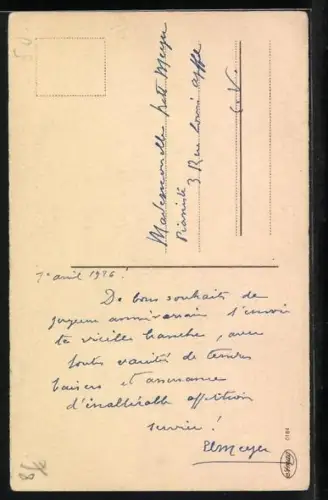 Mademoiselle Meyer
Pianiste
3, Rue Louis
E. V.
1er avril 1926.
De bons souhaits de
joyeux anniversaire t'envoie
ta vieille branche, avec
toute variété de tendres
baisers et assurance
d'inaltérable affection
suivie!
ElMeyer